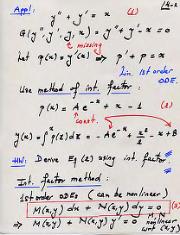 Appl:
y'' + y' = x (1)
G(y'', y', y, x) = y'' + y' - x = 0
missing
Let p(x) = y'(x) ⇒ p' + p = x
Lin. 1st order ODE.
Use method of int. factor:
p(x) = A e^{-x} + x - 1 (2)
const.
y(x) = ∫^x p(z) dz = -A e^{-x} + x²/2 - x + B
HW: Derive Eq (2) using int. factor.
Int. factor method:
1st order ODEs (can be nonlinear)
M(x,y) dx + N(x,y) dy = 0
⇒ M(x,y) + N(x,y) y' = 0 M, N nonlinear wrt (x,y)